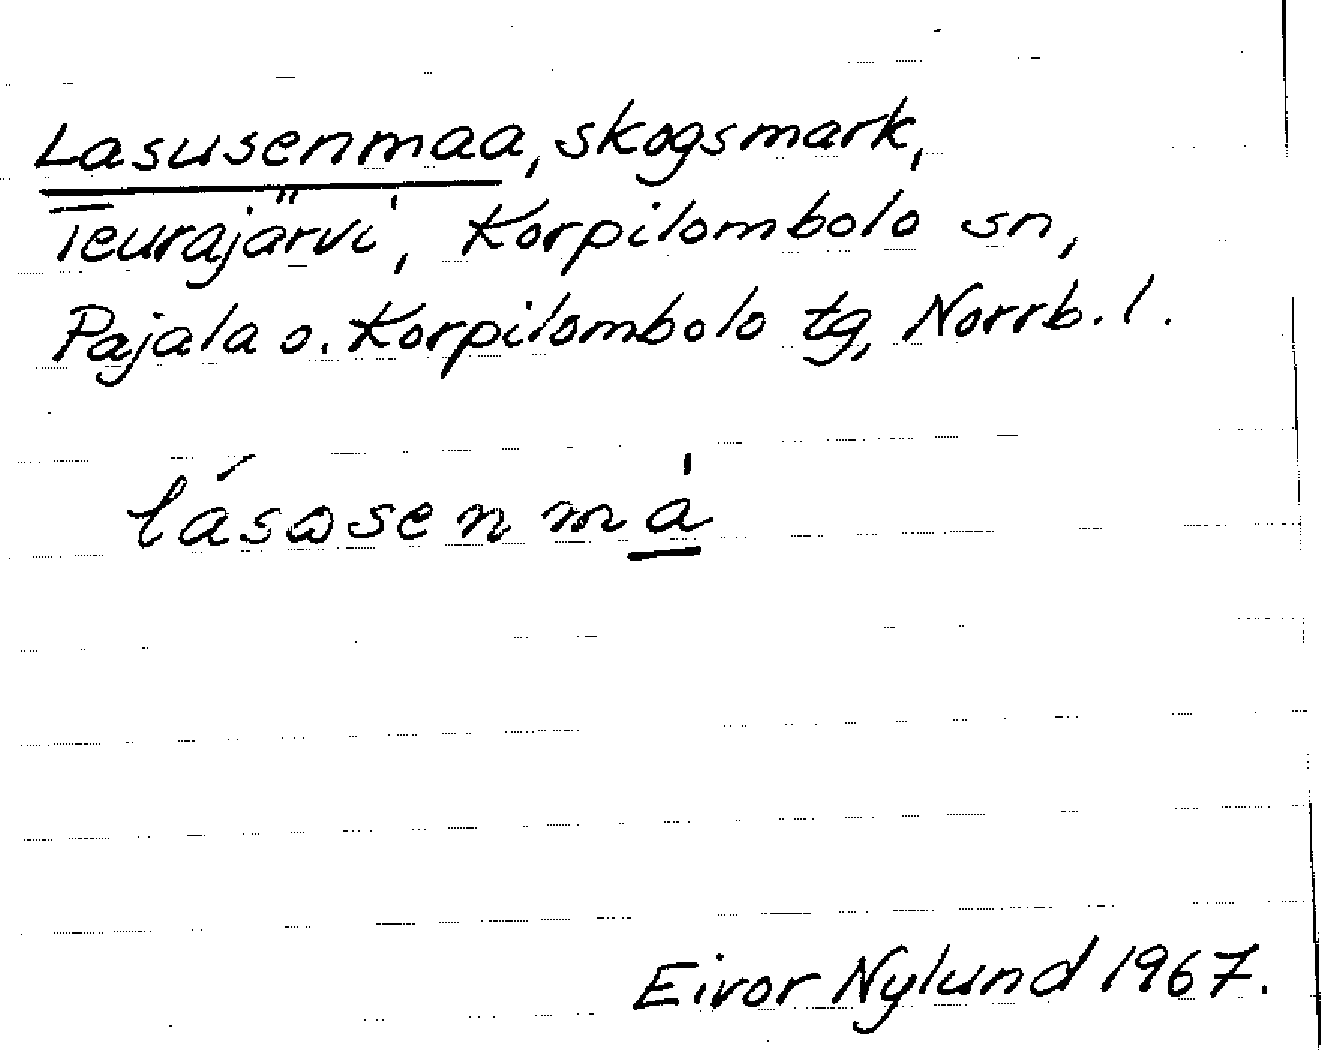 Lasusenmaa, skogsmark,
Teurajärvi, Korpilombolo sn,
Pajala o. Korpilombolo tg, Norrb. l.
lásɷsenmà
Eivor Nylund 1967.